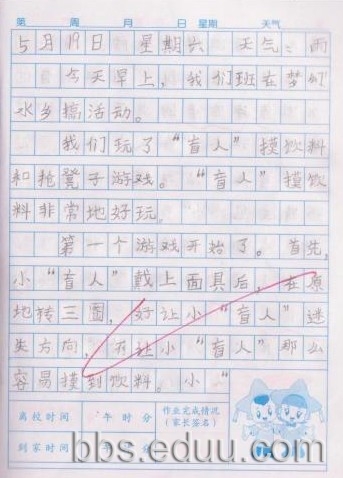 第 周 月 日 星期 天气
5月19日 星期六 天气:雨
今天早上,我们班在梦幻
水乡搞活动。
我们玩了“盲人”摸饮料
和抢凳子游戏。“盲人”摸饮
料非常地好玩。
第一个游戏开始了。首先,
小“盲人”戴上面具后,在原
地转三圈,好让小“盲人”迷
失方向,不让小“盲人”那么
容易摸到饮料。小“
离校时间 年 时 分 作业完成情况
(家长签名)
到家时间 年
bbs.eduu.com